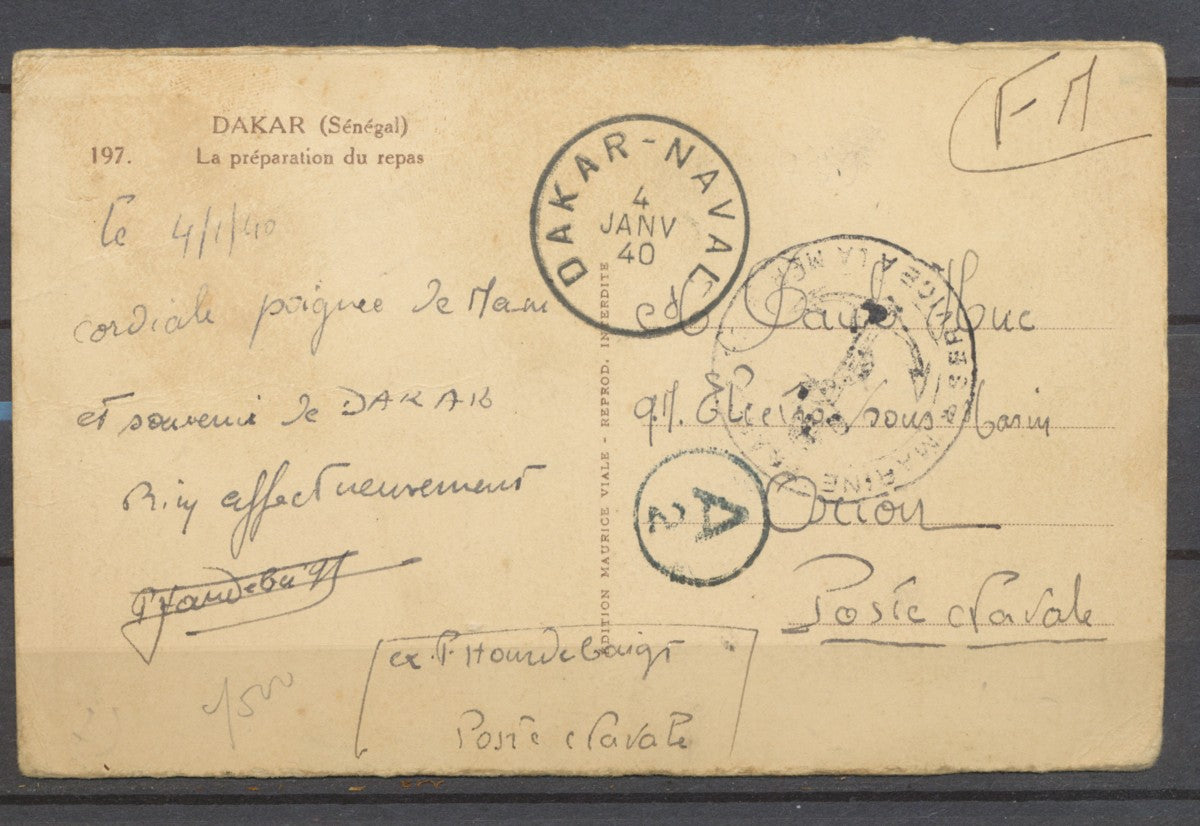 DAKAR (Sénégal)
197. La préparation du repas
le 4/1/40
cordiale poignée de Main
et souvenir de DAKAR
Bien affectueusement
1500
EDITION MAURICE VIALE - REPROD. INTERDITE
F M
DAKAR-NAVAL
4
JANV
40
SERVICE A LA MER
MARINE
A2
Paul Huc
Q.M. sous Marin
Orion
Poste Navale
ex. P. Hourdebaigt
Poste Navale